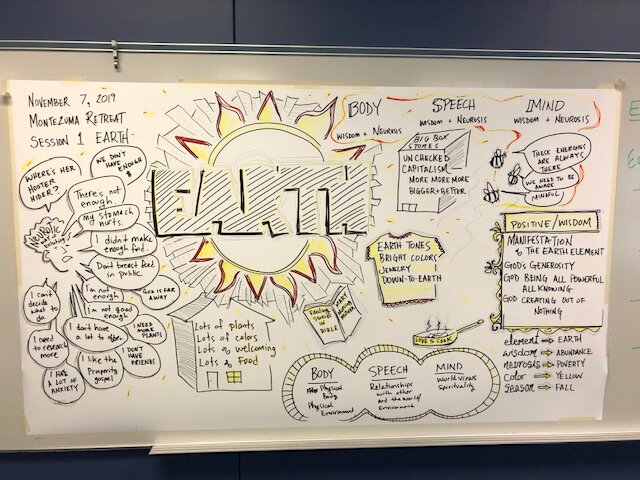 November 7, 2019
Montezuma Retreat
Session 1 EARTH
EARTH
BODY
SPEECH
MIND
WISDOM + NEUROSIS
WISDOM + NEUROSIS
WISDOM + NEUROSIS
BIG BOX
STORES
UNCHECKED
CAPITALISM
MORE MORE MORE
BIGGER + BETTER
THESE ENERGIES
ARE ALWAYS
THERE
WE NEED TO BE
AWARE
MINDFUL
WHERE'S HER
HOOTER
HIDER?
WE DON'T
HAVE ENOUGH
$
There's not
enough.
My stomach
hurts.
I didn't make
enough food.
Don't breast feed
in public.
Neurotic
I'm not
enough
GOD IS FAR
AWAY
I'm not good
enough
I can't
decide
what to
do
I don't have
a lot to offer.
I NEED
MORE
PLANTS
I need to
research
more
I DON'T
HAVE
FRIENDS
I like the
Prosperity
gospel
I HAS
A LOT OF
ANXIETY
Lots of plants
Lots of colors
Lots of welcoming
Lots of Food
EARTH TONES
BRIGHT COLORS
JEWELRY
DOWN-TO-EARTH
Feeding
Stories
in
BIBLE
LOVE TO COOK
POSITIVE/WISDOM
MANIFESTATION
of THE EARTH ELEMENT
GOD'S GENEROSITY
GOD BEING ALL POWERFUL
ALL KNOWING
GOD CREATING OUT OF
NOTHING
element ⇒ EARTH
wisdom ⇒ ABUNDANCE
neurosis ⇒ POVERTY
color ⇒ YELLOW
season ⇒ FALL
BODY
Physical
Body
Physical
Environment
SPEECH
Relationships
with other
and the world/
Environment
MIND
World Views
Spirituality